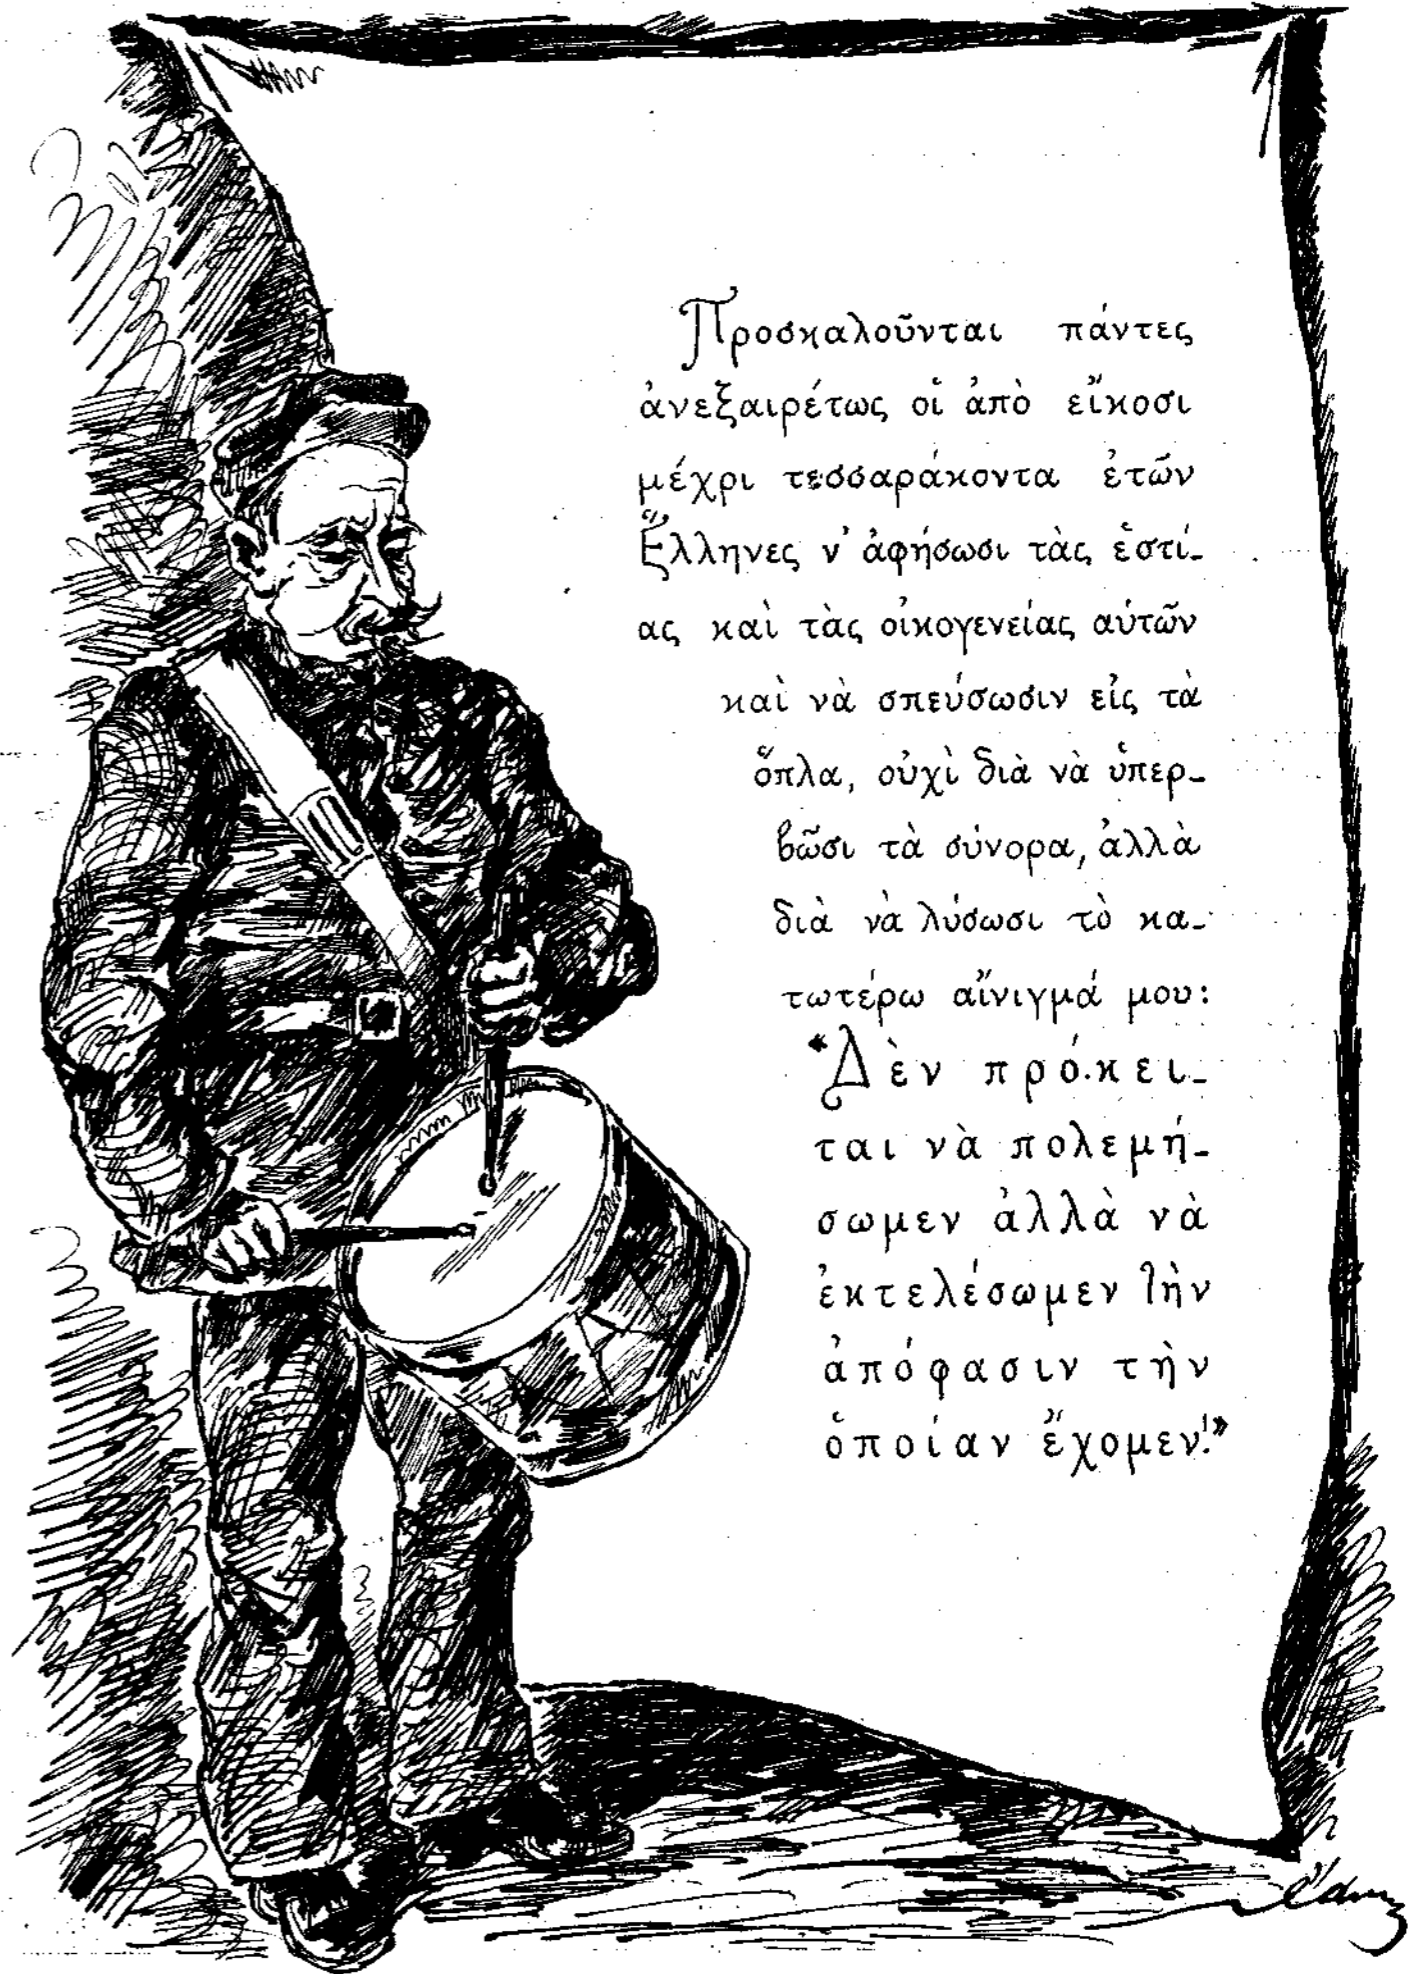 Προσκαλοῦνται πάντες
ἀνεξαιρέτως οἱ ἀπὸ εἴκοσι
μέχρι τεσσαράκοντα ἐτῶν
Ἕλληνες ν' ἀφήσωσι τὰς ἑστί-
ας καὶ τὰς οἰκογενείας αὐτῶν
καὶ νὰ σπεύσωσιν εἰς τὰ
ὅπλα, οὐχὶ διὰ νὰ ὑπερ-
βῶσι τὰ σύνορα, ἀλλὰ
διὰ νὰ λύσωσι τὸ κα-
τωτέρω αἴνιγμά μου:
"Δὲν πρόκει-
ται νὰ πολεμή-
σωμεν ἀλλὰ νὰ
ἐκτελέσωμεν τὴν
ἀπόφασιν τὴν
ὁποίαν ἔχομεν!"